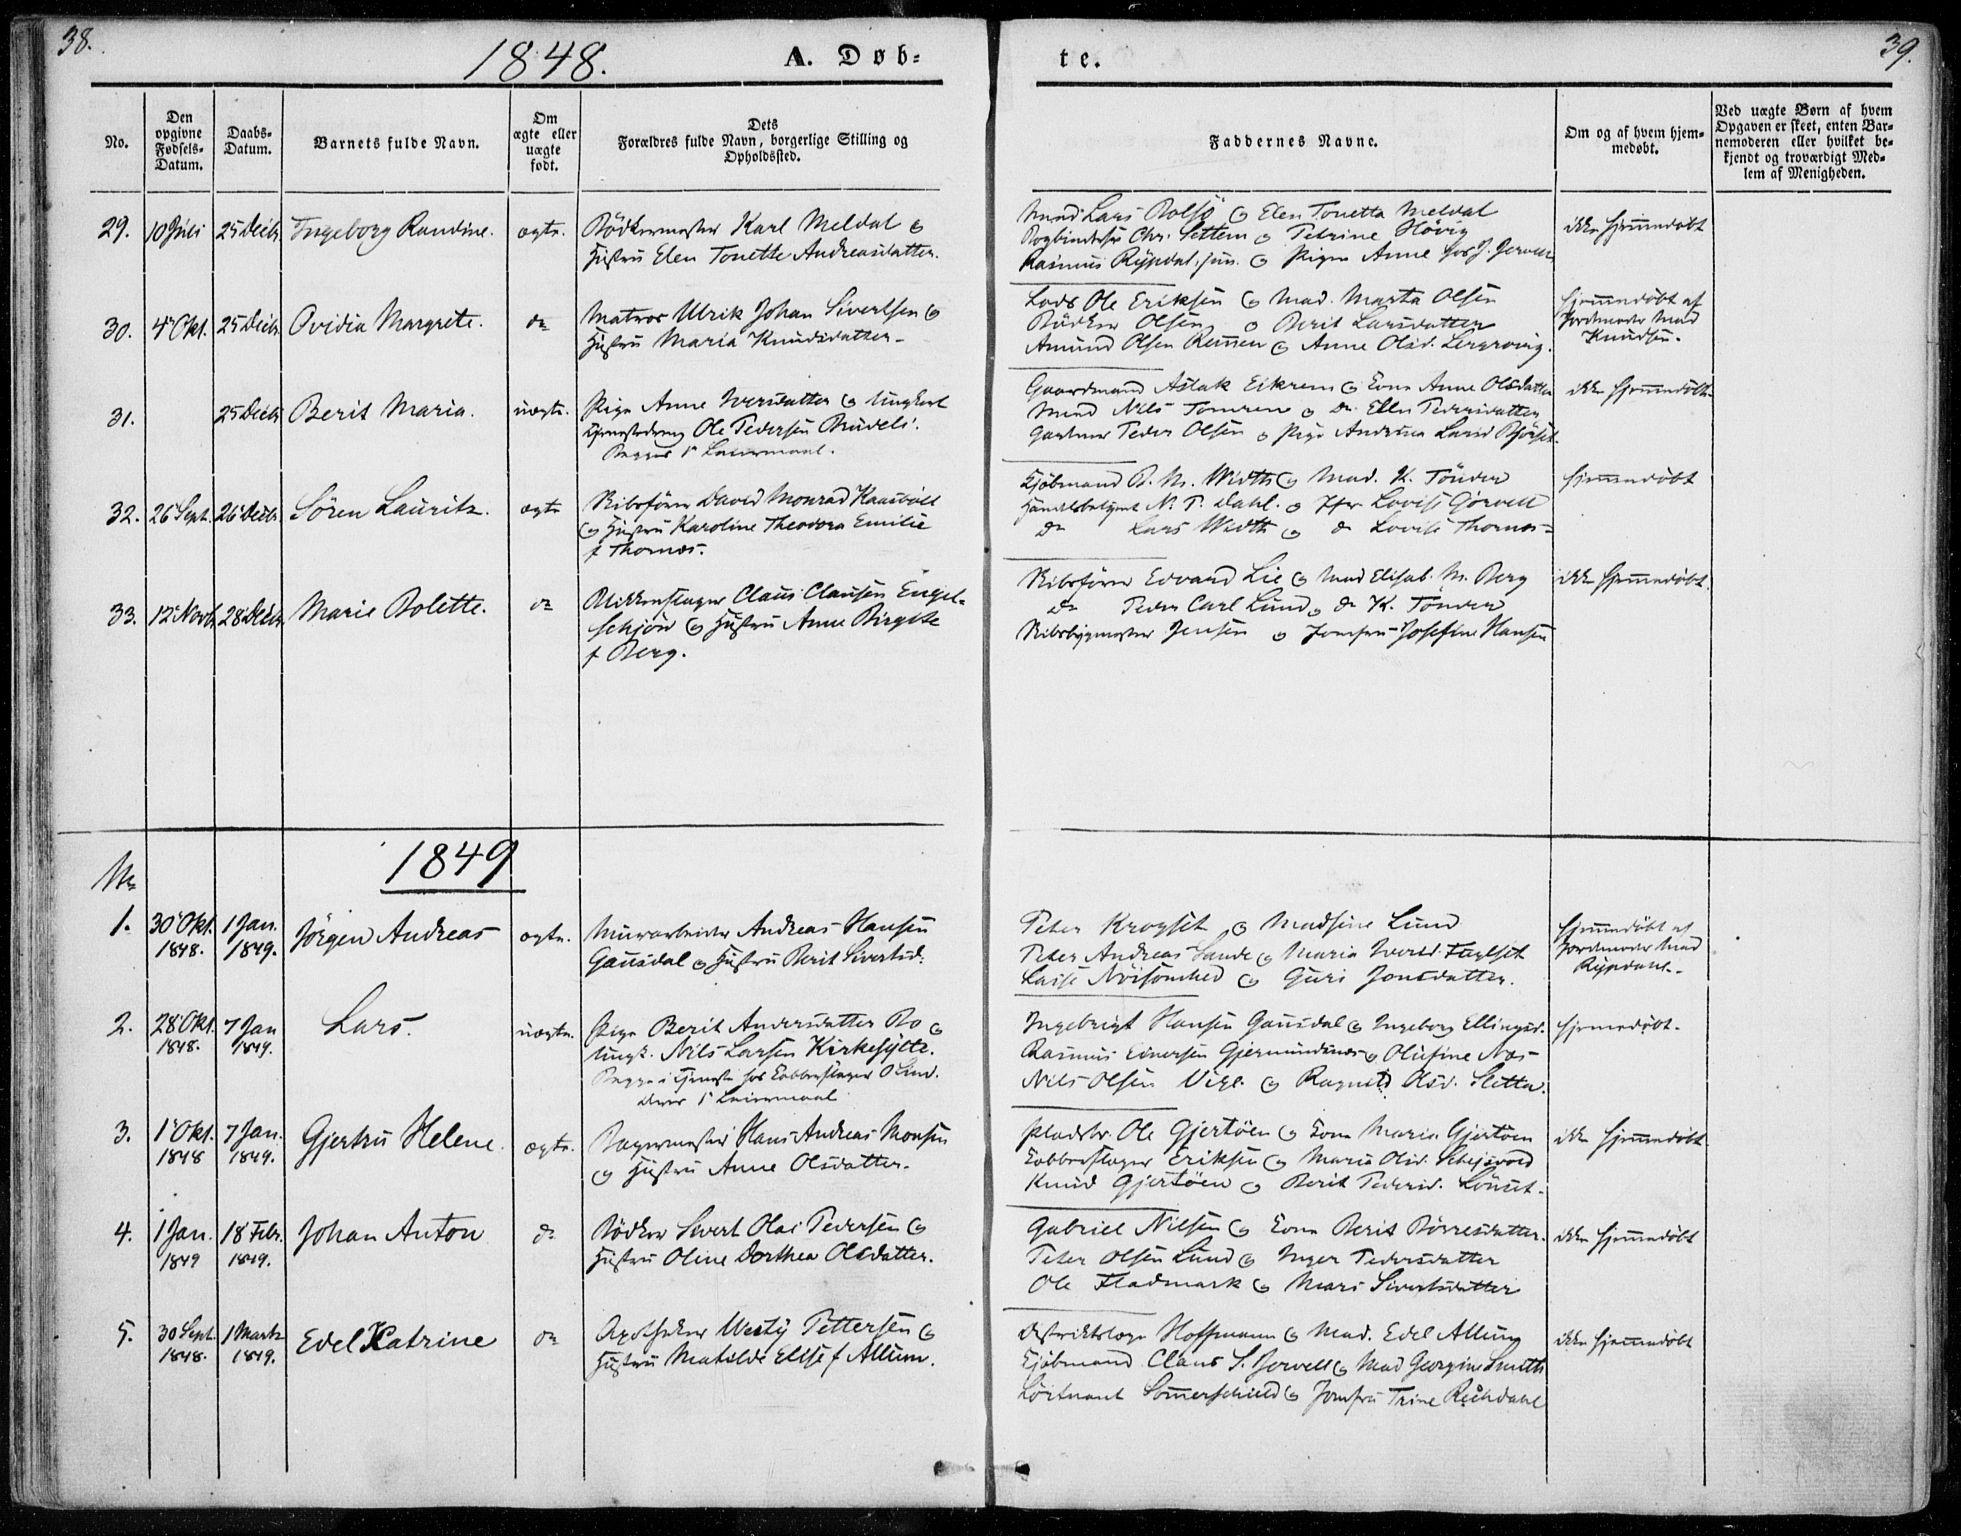 38.
1848.
A. Døb-
te.
39.
No.
Den opgivne Fødsels-Datum.
Daabs-Datum.
Barnets fulde Navn.
Om ægte eller uægte født.
Dets Forældres fulde Navn, borgerlige Stilling og Opholdssted.
Faddernes Navne.
Om og af hvem hjemmedøbt.
Ved uægte Børn af hvem Opgaven er skeet, enten Barnemoderen eller hvilket bekjendt og troværdigt Medlem af Menigheden.
29. 10 Juli 25 Decb. Ingeborg Randine. ægte. Bödkermester Karl Meldal og
Hustru Elen Tonette Andreasdatter.
Lars Bolsö og Elen Tonetta Meldal
Bogbinder Chr. Settem og Petrine Hövig
Rasmus Rypdal, jun. og Pigen Anne hos J.
ikke hjemmedøbt
30. 4 Okt. 25 Decb. Ovidia Margrete. do Matros Ulrik Johan Sivertsen og
Hustru Maria Knudsdatter.
Lods Ole Eriksen og Mad. Marta Olsen
Bödker Olsen og Berit Larsdatter
Amund Olsen og Anne Olsd.
hjemmedøbt af
Jordmoder Mad
Knudsen.
31. 25 Decb. Berit Maria. uægte. Pige Anne Iversdatter og Ungkarl
Ole Pedersen
Begges 1ste Leiermaal.
Gaardmand Aslak Eikrem og Kone Anne Olsdatter
Nils Tomren og do Ellen Pedersdatter
Peder Olsen og Pige
ikke hjemmedøbt
32. 26 Sept. 26 Decb. Sören Lauritz. ægte Skibsförer David Monrad Kaasböll
og Hustru Karoline Theodora Emilie
f. Thornæs.
Kjöbmand B. M. Width og Mad. K. Tönder
N. P. Dahl. og Jfr Lovise Gjörvell
do Lars Width og do Lovise Thornæs
hjemmedøbt
33. 12 Novb. 28 Decb. Marie Bolette. do Blikkenslager Claus Clausen Engel-
schjön og Hustru Anne Birgitte
f. Berg.
Skibsförer Edvard Lie og Mad Elisab. M. Berg
do Peder Carl Lund og do K. Tönder
Skibsbygmester Jensen og Jomfru Josefine Hansen
ikke hjemmedøbt.
1849
No
1. 30 Okt. 1848. 1 Jan. 1849. Jörgen Andreas ægte. Murarbeider Andreas Hansen
Gausdal og Hustru Berit Sivertsd.
Peter Krogset og Madsine Lund
Peter Andreas Sande og Maria Iversd.
Nöisomhed og Guri Jonsdatter.
hjemmedøbt af
Jordmoder Mad
Rypdahl.
2. 28 Okt. 1848. 7 Jan 1849. Lars. uægte. Pige Berit Andersdatter Bo og
Ungk. Nils Larsen Kirkesylte.
Begge i Tjeneste hos Kobberslager O Lind.
Deres 1ste Leiermaal
Ingebrigt Hansen Gausdal og Ingeborg Ellingsd.
Rasmus Einersen Gjermundnæs og Olufine Næs
Nils Olsen og Ragnild Olsd. Sletta.
hjemmedøbt.
3. 1 Okt. 1848 7 Jan. 1849. Gjertru Helene. ægte. Bagermester Hans Andreas Monsen
og Hustru Anne Olsdatter.
Ole Gjertöen og Kone Maria Gjertöen
Kobberslager Eriksen og Maria Olsd.
Knud Gjertöen og Berit Pedersd. Lönset.
ikke hjemmedøbt
4. 1 Jan. 1849 18 Febr. 1849. Johan Anton do Bödker Sivert Olai Pedersen og
Hustru Oline Dorthea Olsdatter.
Gabriel Nilsen og Kone Berit Börresdatter.
Peter Olsen Lund og Inger Pedersdatter
Ole Fladmark og Mari Sivertsdatter
ikke hjemmedøbt
5. 30 Sept. 1848. 1 Marts 1849. Edel Katrine do Apotheker Westy Pettersen og
Hustru Matilde Elise f. Allum.
Distriktslæge Hoffmann og Mad. Edel Allum
Kjöbmand Claus S. Jervell og Mad Georgine Smith
Löitnant Sömerschield og Jomfru Trine Rechdahl
ikke hjemmedøbt